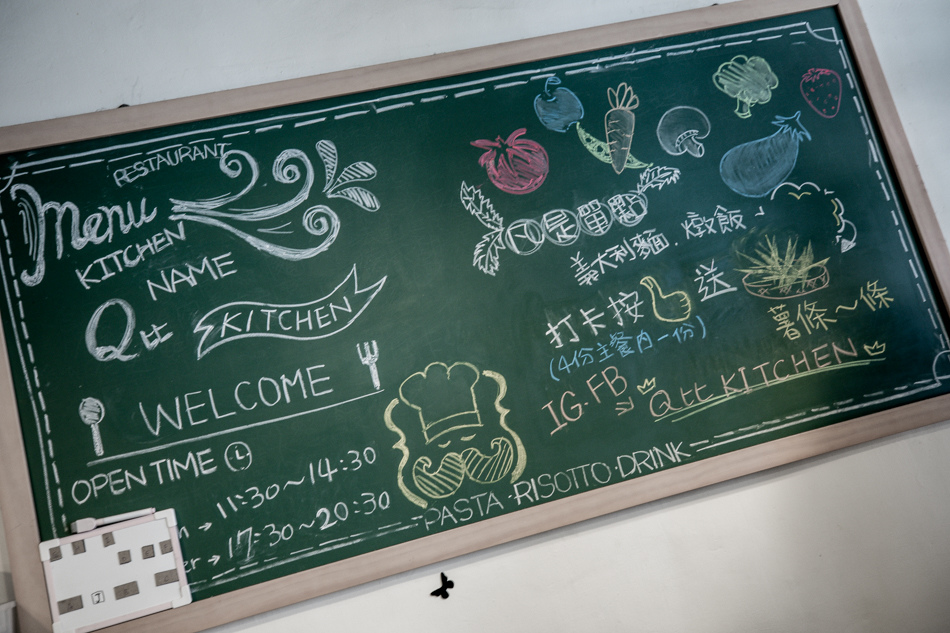 RESTAURANT
Menu
KITCHEN
NAME
Qtt KITCHEN
WELCOME
OPEN TIME
→ 11:30～14:30
er → 17:30～20:30
PASTA·RISOTTO·DRINK
是單點
義大利麵.燉飯
打卡按 送
(4份主餐內一份)
薯條～條
IG.FB
Qtt KITCHEN